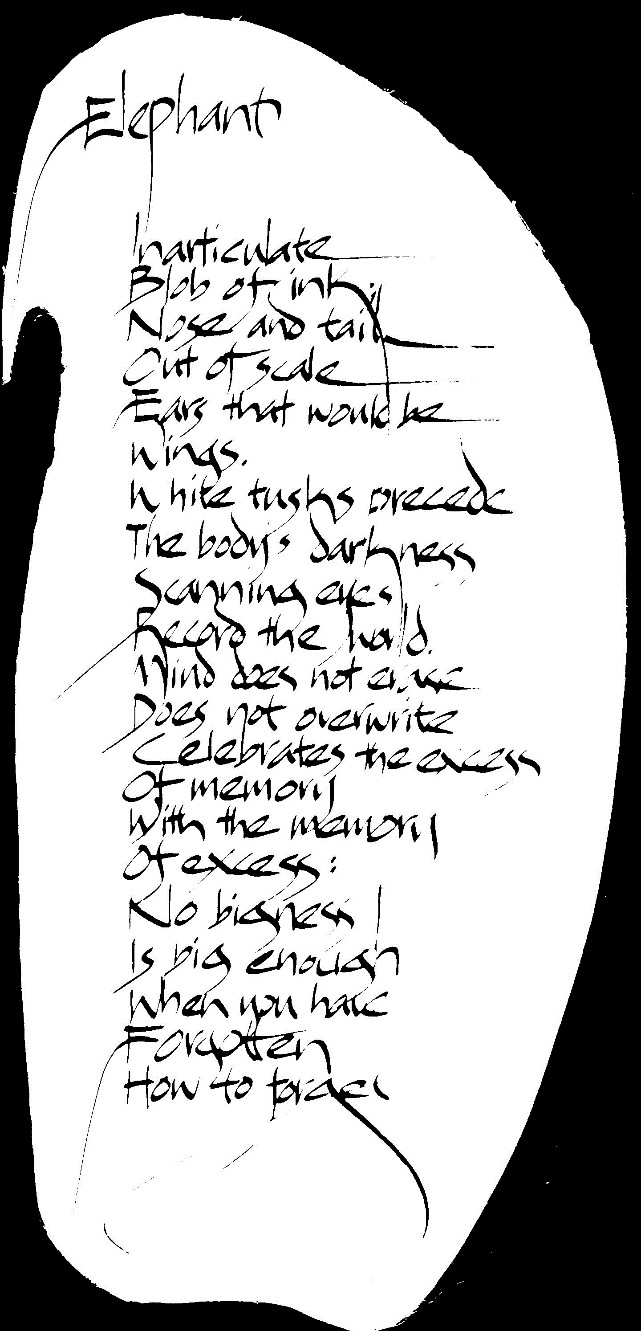 Elephant
Inarticulate
Blob of ink;
Nose and tail
Out of scale
Ears that would be
Wings.
White tusks precede
The body's darkness
Scanning eyes
Record the world.
Mind does not erase
Does not overwrite
Celebrates the excess
Of memory
With the memory
Of excess:
No bigness
Is big enough
When you have
Forgotten
How to forget